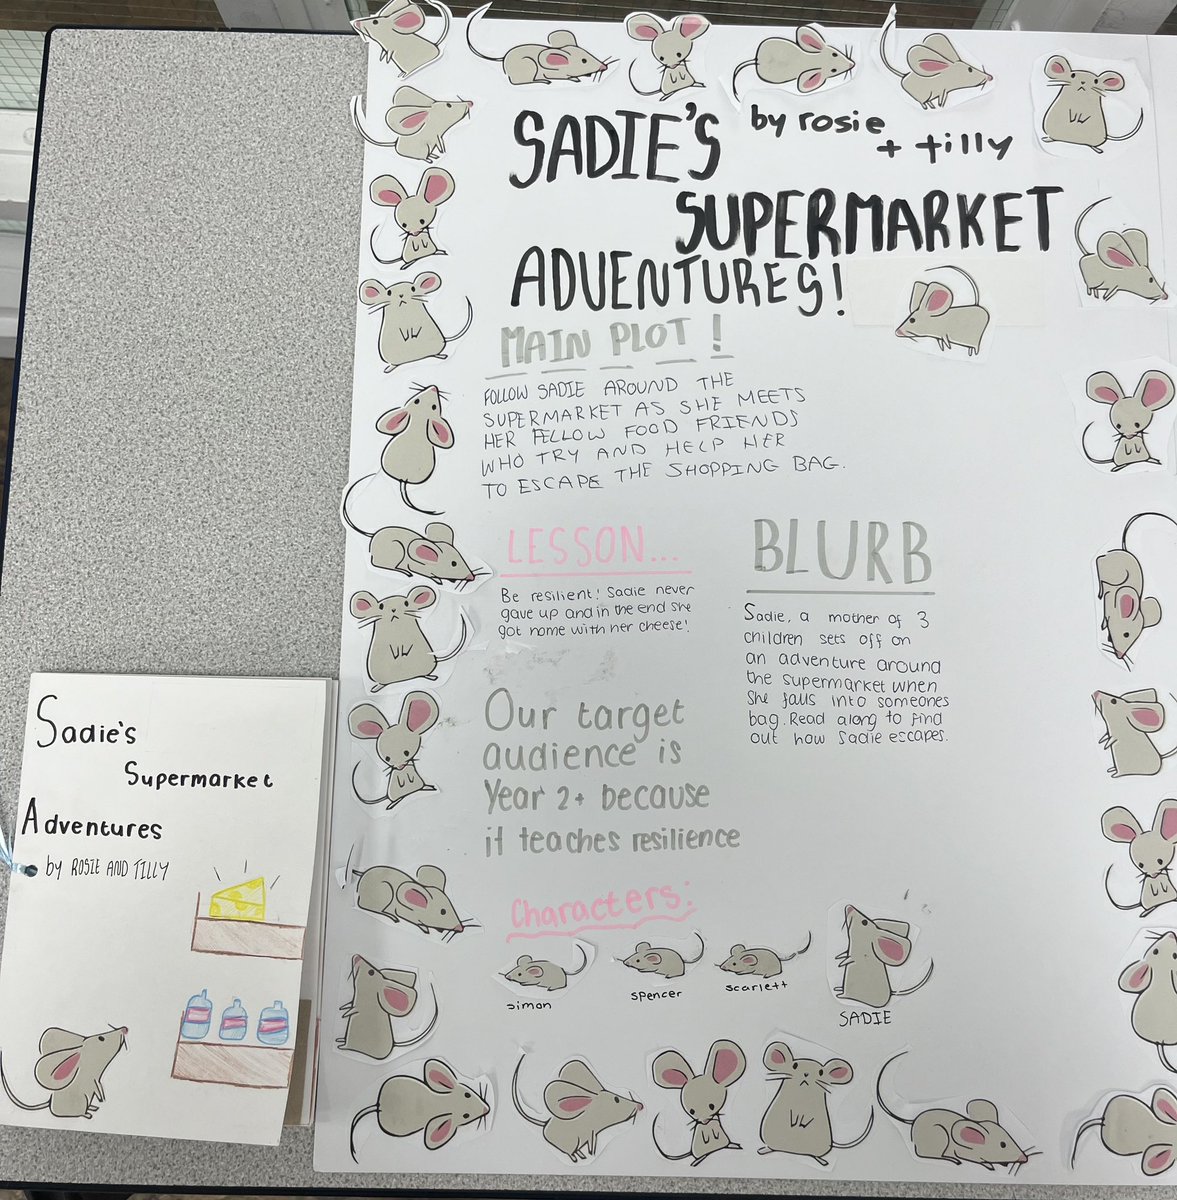 SADIE'S by rosie
+ tilly
SUPERMARKET
ADVENTURES!
MAIN PLOT !
FOLLOW SADIE AROUND THE
SUPERMARKET AS SHE MEETS
HER FELLOW FOOD FRIENDS
WHO TRY AND HELP HER
TO ESCAPE THE SHOPPING BAG.
LESSON...
Be resilient! Sadie never
gave up and in the end she
got home with her cheese!
BLURB
Sadie, a mother of 3
children sets off on
an adventure around
the supermarket when
she falls into someones
bag. Read along to find
out how Sadie escapes.
Our target
audience is
Year 2+ because
it teaches resilience
Characters:
simon
spencer
scarlett
SADIE
Sadie's
Supermarket
Adventures
by ROSIE AND TILLY